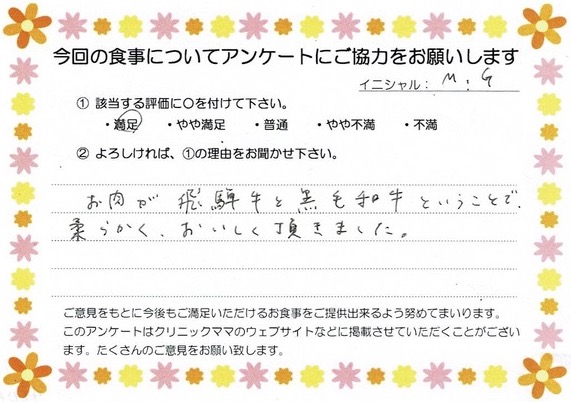 今回の食事についてアンケートにご協力をお願いします
イニシャル： M．G
① 該当する評価に〇を付けて下さい。
・満足 ・やや満足 ・普通 ・やや不満 ・不満
② よろしければ、①の理由をお聞かせ下さい。
お肉が 飛騨牛と黒毛和牛ということで、
柔らかく、おいしく頂きました。
ご意見をもとに今後もご満足いただけるお食事をご提供出来るよう努めてまいります。
このアンケートはクリニックママのウェブサイトなどに掲載させていただくことがござい
ます。たくさんのご意見をお願い致します。